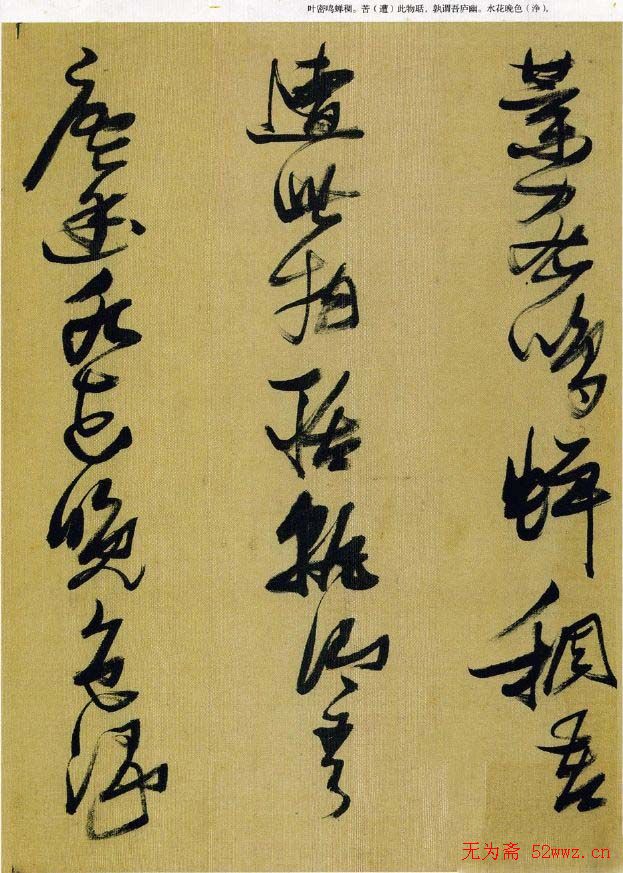 叶密鸣蝉稠。苦(遭)此物聒,孰谓吾庐幽。水花晚色(净)。
葉密鳴蟬稠苦
遭此物聒孰謂吾
廬幽水花晚色淨
无为斋 52wwz.cn